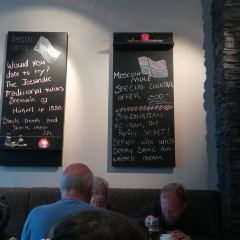 SPECIAL
OFFER
Would you
dare to try?
The Icelandic
traditional twins
Brennivin og
Hákarl kr 1550.
Black Death and
Shark meat
Moscow MULE
SPECIAL COCKTAIL
OFFER 1500-
SCANDINAVIAN
ICE CREAM, THE
FAMILY SECRET!
SERVED WITH WILD
BERRY SAUCE AND
WHIPPED CREAM